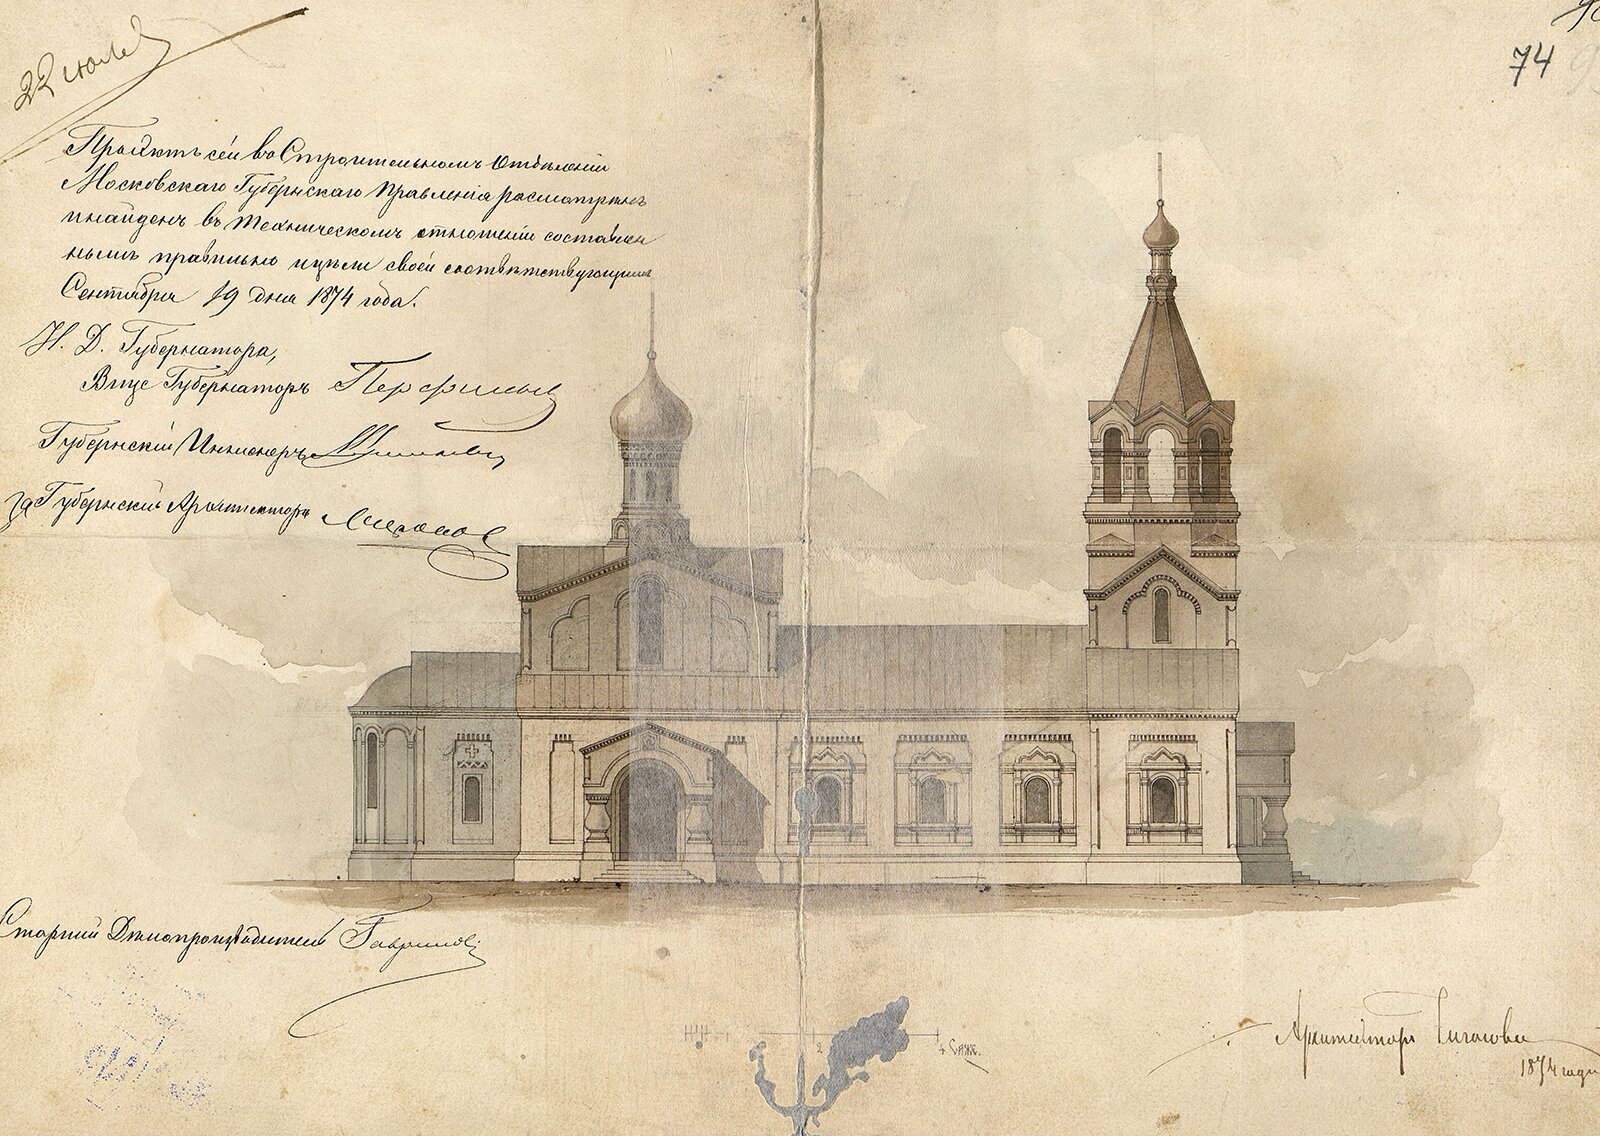 22 июля
74
Проэктъ сей въ Строительномъ Отдѣленіи
Московскаго Губернскаго Правленія разсмотренъ
и найденъ въ техническомъ отношеніи составлен
нымъ правильно и цѣли своей соотвѣтствующимъ
Сентября 19 дня 1874 года.
И. Д. Губернатора,
Вице Губернаторъ Перфильев
Губернскій Инженеръ
За Губернскій Архитектора
Старшій Дѣлопроизводитель Гаврилов
2 4 Саже.
Архитекторъ
1874 года